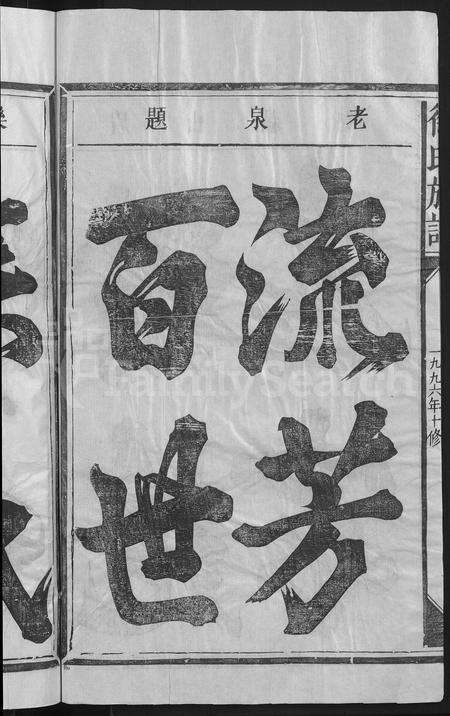 徐氏族譜
一九九六年十修
老泉題
流芳
百世
FamilySearch